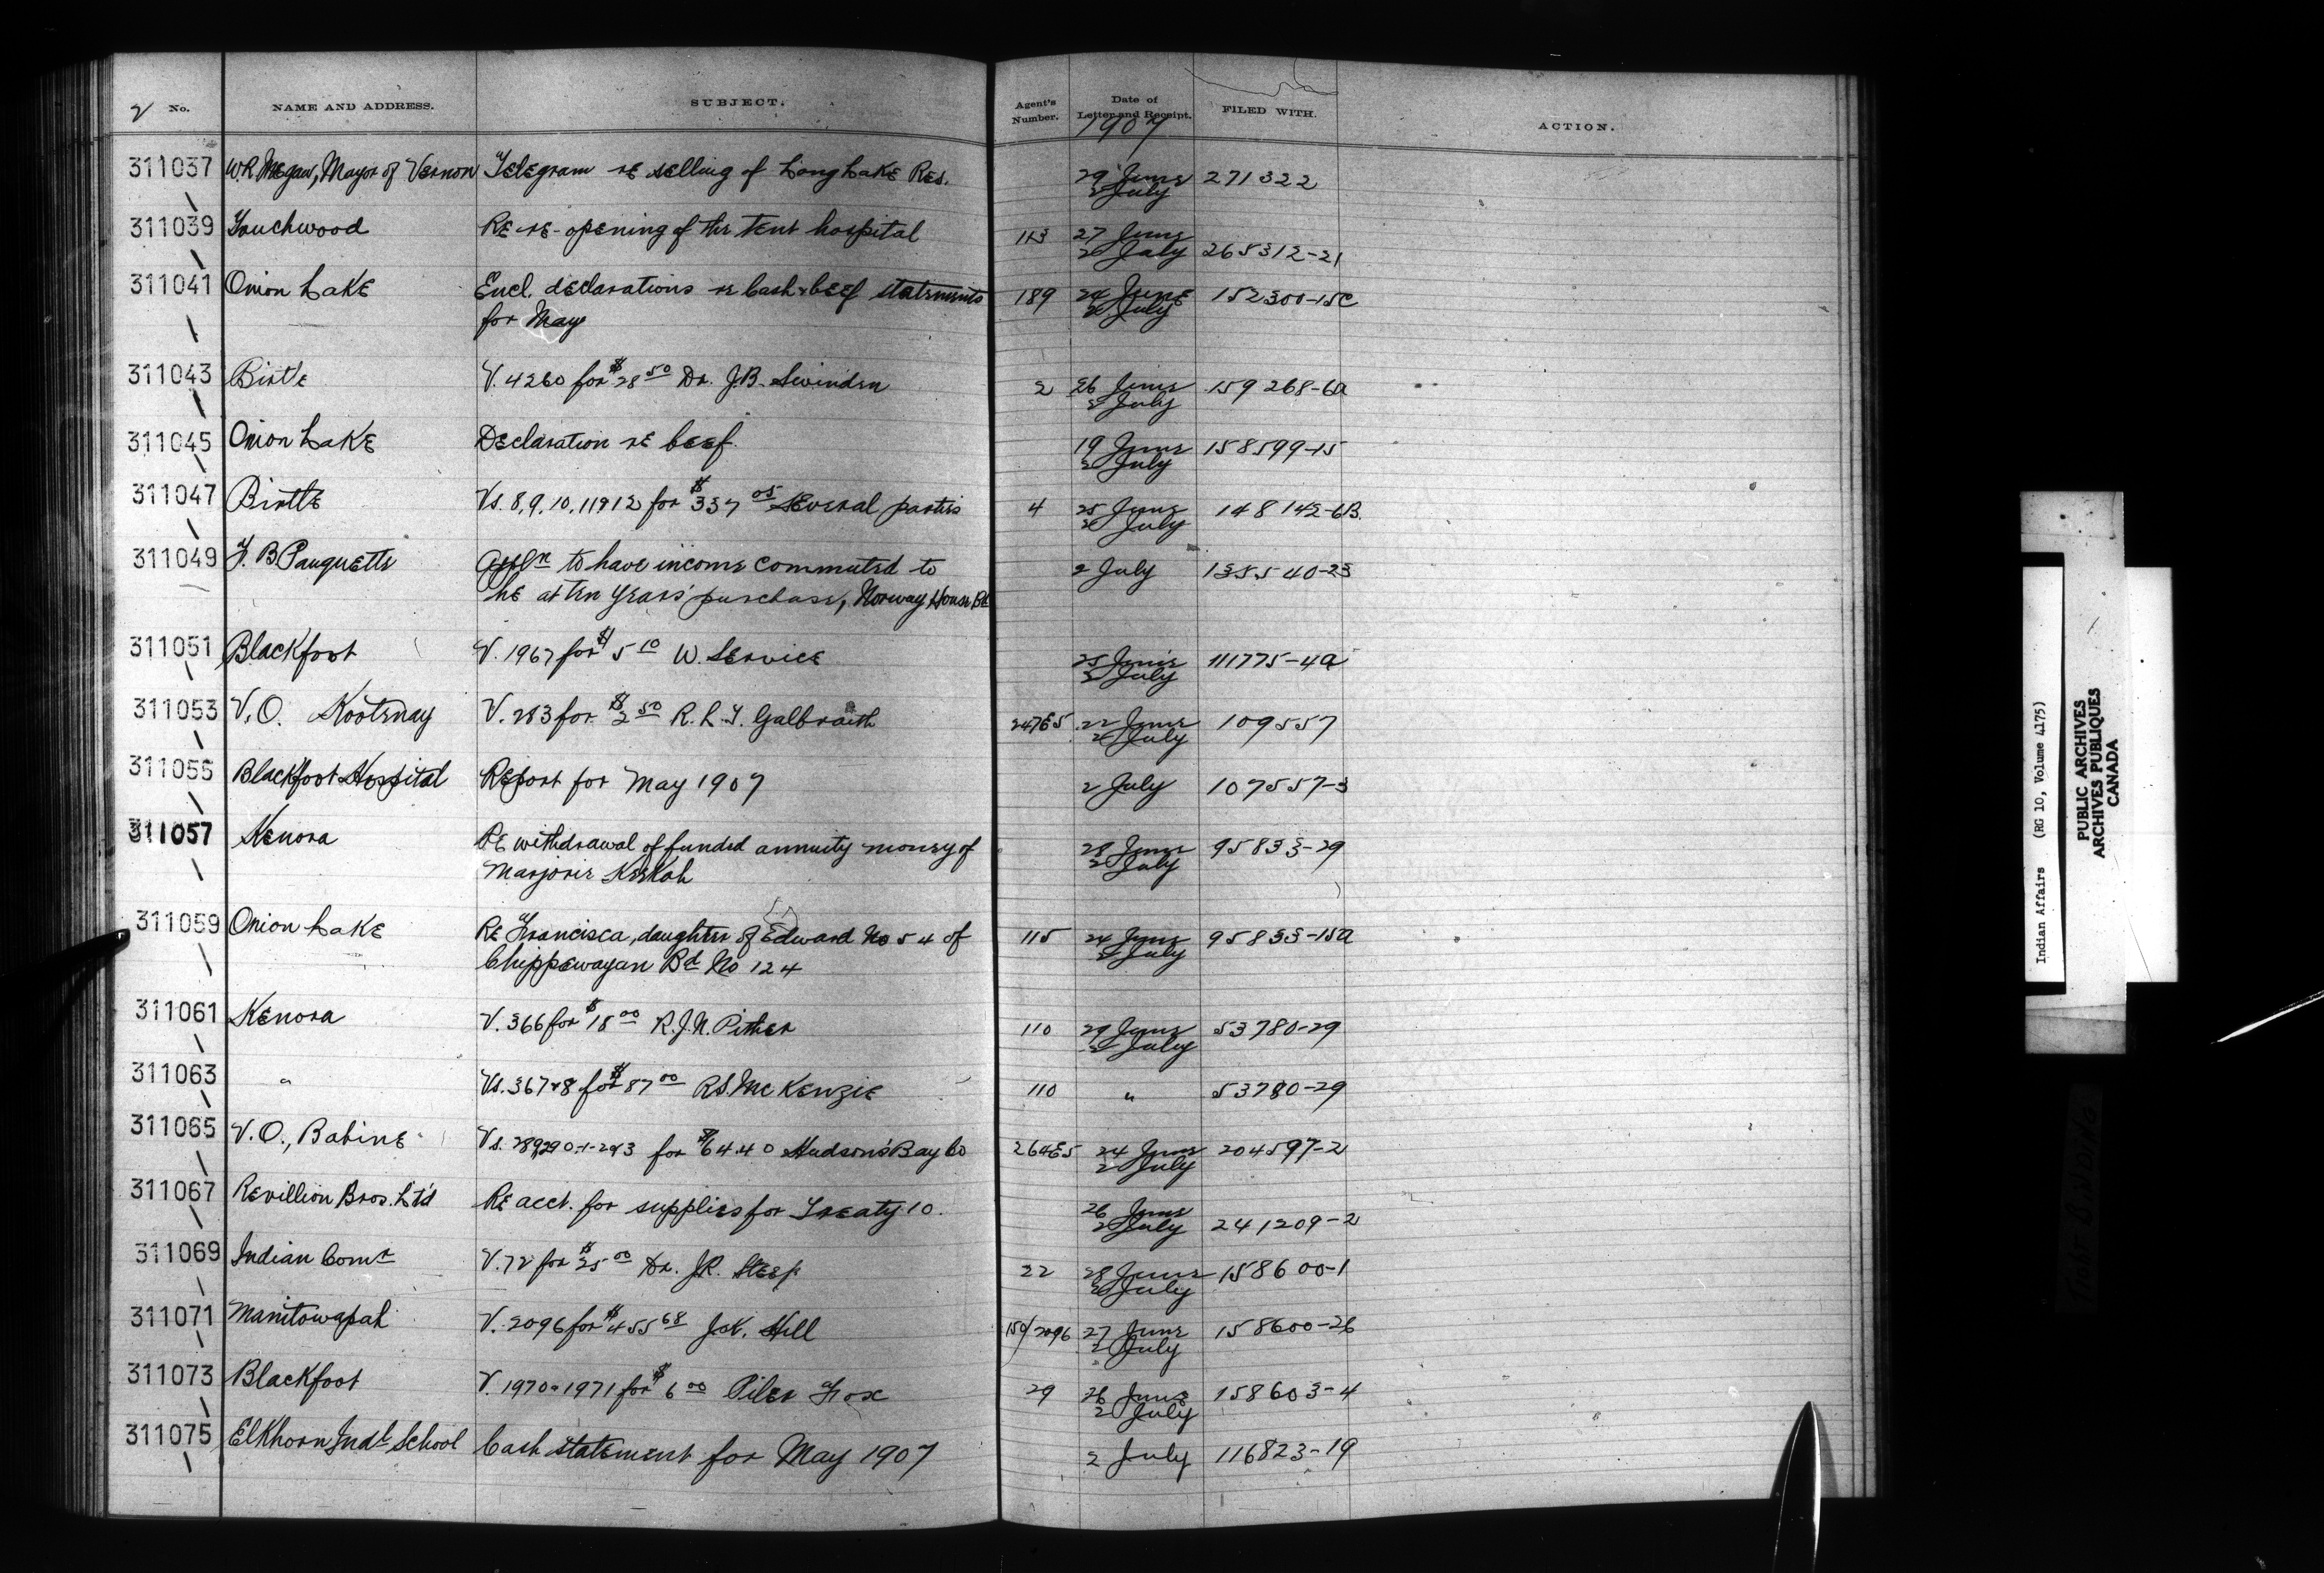 2 No. NAME AND ADDRESS. SUBJECT. Agent's Number. Date of Letter and Receipt. 1907 FILED WITH. ACTION.
311037 W.R. Megaw, Mayor of Vernon Telegram re selling of Long Lake Res. 29 June 2 July 271322
311039 Touchwood Re re-opening of the tent hospital 113 27 June 2 July 265312-21
311041 Onion Lake Encl. declarations re Cash & beef statements 189 24 June 2 July 152300-15C
for May
311043 Birtle V. 4260 for $28 50 Dr. J.B. Swinden 2 26 June 2 July 159268-6a
311045 Onion Lake Declaration re beef. 19 June 2 July 158599-15
311047 Birtle Vs. 8, 9, 10, 11 & 12 for $337 05 several parties 4 25 June 2 July 148142-6B.
311049 J. B Pauquette Appln to have income commuted to 2 July 135540-23
be at ten years' purchase, Norway House Bd
311051 Blackfoot V. 1967 for $5 10 W. Service 25 June 2 July 111775-4a
311053 V.O. Kootenay V. 283 for $2 50 R. L. T. Galbraith 247E5 22 June 2 July 109557
311055 Blackfoot Hospital Report for May 1907 2 July 107557-3
311057 Kenora Re withdrawal of funded annuity money of 28 June 2 July 95833-29
Marjorie Keekah
311059 Onion Lake Re Francisca, daughter of Edward No 54 of 115 24 June 2 July 95833-15a
Chippewayan Bd No 124
311061 Kenora V. 366 for $18 00 R.J.N. Pither 110 29 June 2 July 53780-29
311063 " Vs. 367 & 8 for $87 00 R.S. McKenzie 110 " 53780-29
311065 V.O., Babine Vs. 289,290-1-293 for $64.40 Hudson's Bay Co 264E5 24 June 2 July 204597-2
311067 Revillion Bros. Lt'd Re acct. for supplies for Treaty 10. 26 June 2 July 241209-2
311069 Indian Comr V. 72 for $25 00 Dr. J.R. Steep 22 28 June 2 July 158600-1
311071 Manitowapah V. 2096 for $455 68 J.K. Hill 150/2096 27 June 2 July 158600-26
311073 Blackfoot V. 1970 & 1971 for $6 00 Piler Fox 29 26 June 2 July 158603-4
311075 Elkhorn Indl School Cash statement for May 1907 2 July 116823-19
Indian Affairs (RG 10, Volume 4175)
PUBLIC ARCHIVES
ARCHIVES PUBLIQUES
CANADA